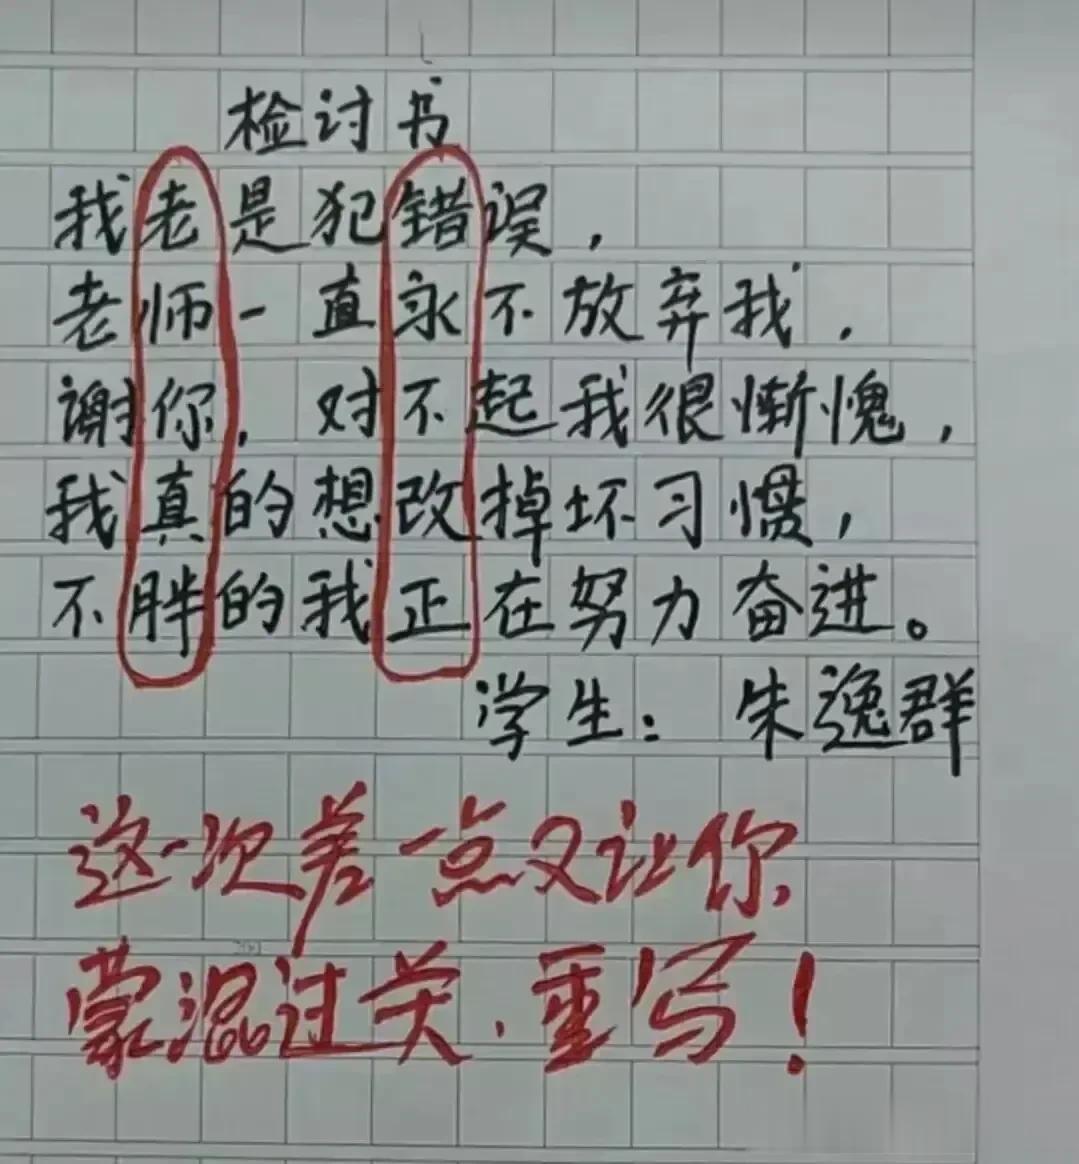 检讨书
我老是犯错误，
老师一直永不放弃我，
谢你，对不起我很惭愧，
我真的想改掉坏习惯，
不胖的我正在努力奋进。
学生：朱逸群
这一次差一点又让你
蒙混过关，重写！